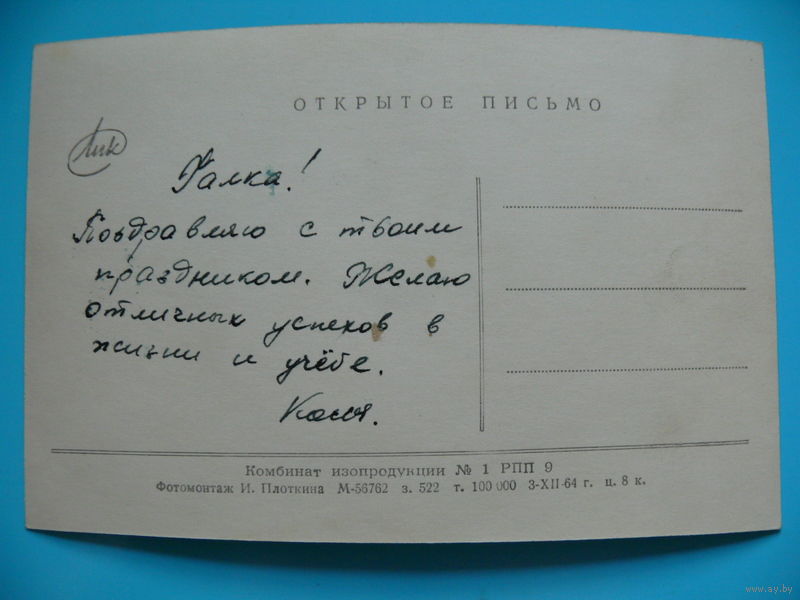 ОТКРЫТОЕ ПИСЬМО
Галка!
Поздравляю с твоим
праздником. Желаю
отличных успехов в
жизни и учёбе.
Коля.
Комбинат изопродукции № 1 РПП 9
Фотомонтаж И. Плоткина М-56762 з. 522 т. 100 000 3-XII-64 г. ц. 8 к.
www.ay.by